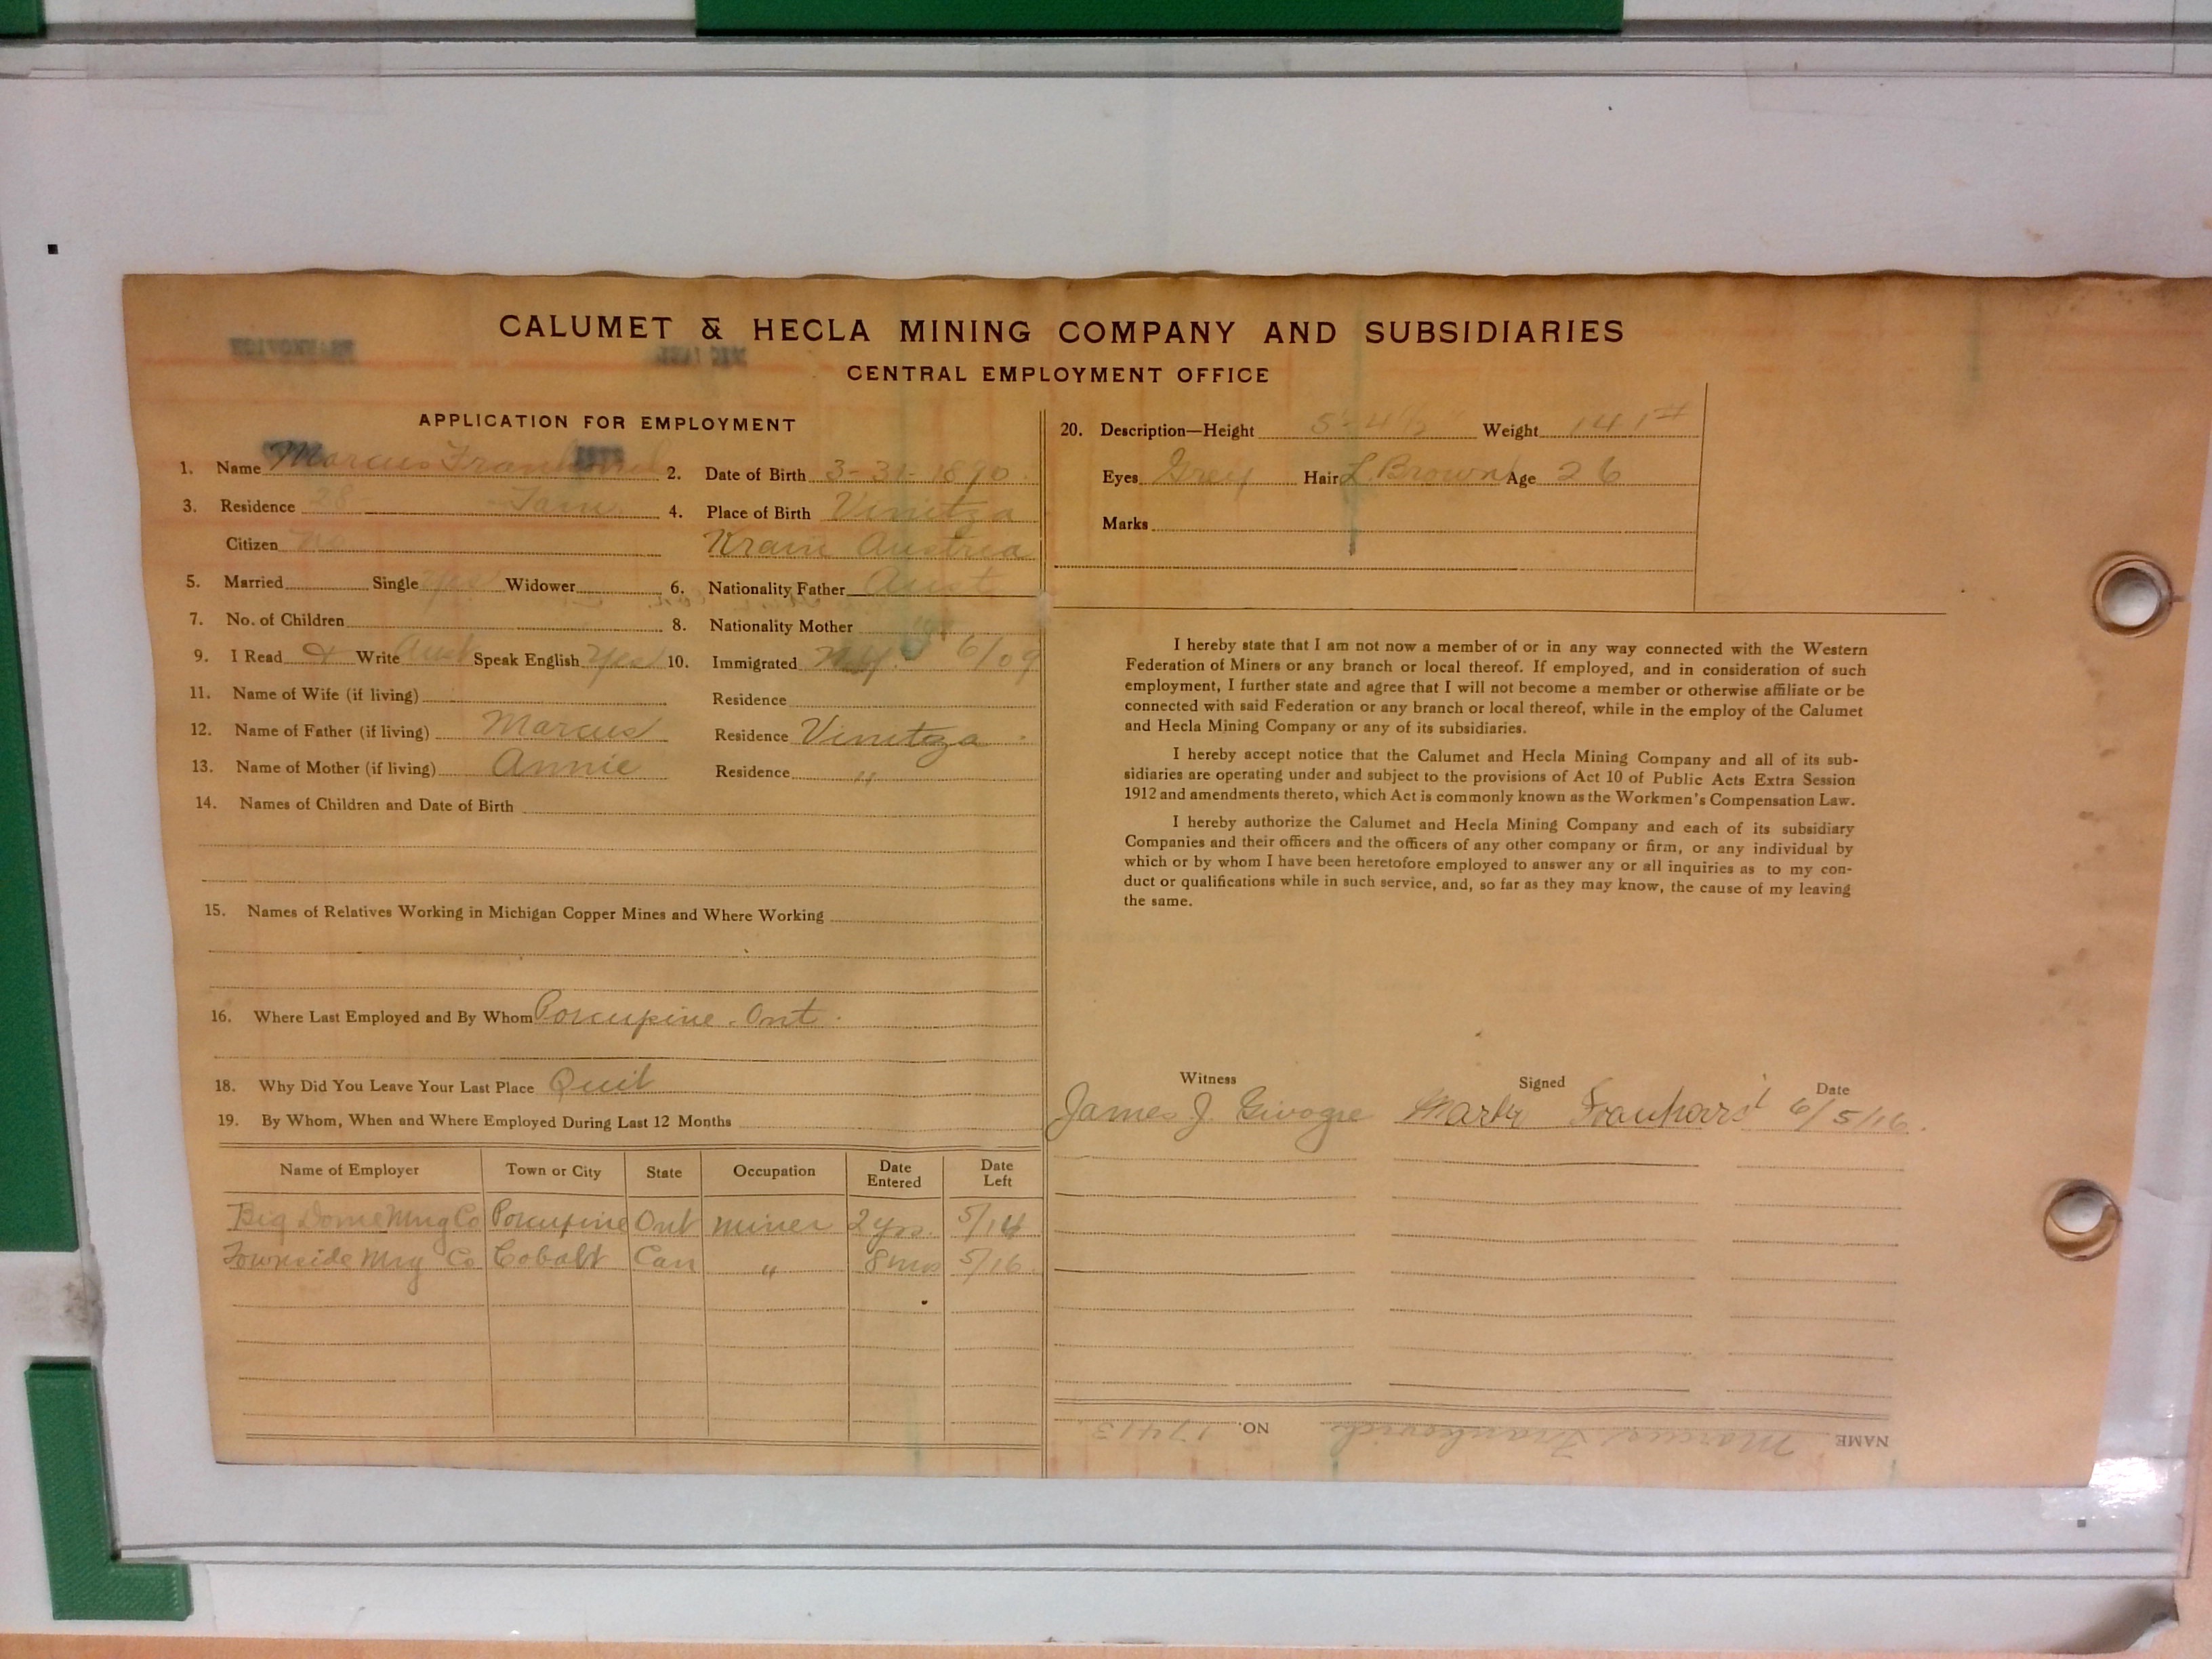 CALUMET & HECLA MINING COMPANY AND SUBSIDIARIES
CENTRAL EMPLOYMENT OFFICE
APPLICATION FOR EMPLOYMENT
1. Name Marcus 2. Date of Birth 3-31-1890
3. Residence 28 4. Place of Birth Vinitza
Citizen No Krain Austria
5. Married Single Yes Widower 6. Nationality Father Aust
7. No. of Children 8. Nationality Mother
9. I Read & Write Aust Speak English Yes 10. Immigrated N.Y. 6/09
11. Name of Wife (if living) Residence
12. Name of Father (if living) Marcus Residence Vinitza
13. Name of Mother (if living) Annie Residence "
14. Names of Children and Date of Birth
15. Names of Relatives Working in Michigan Copper Mines and Where Working
16. Where Last Employed and By Whom Porcupine. Ont.
18. Why Did You Leave Your Last Place Quit
19. By Whom, When and Where Employed During Last 12 Months
Name of Employer Town or City State Occupation Date Entered Date Left
Big Dome Mng Co Porcupine Ont miner 2 yrs. 5/14
Townside Mng Co Cobalt Can " 8 mos 5/16
20. Description—Height 5-4 1/2 Weight 141#
Eyes Grey Hair L. Brown Age 26
Marks
I hereby state that I am not now a member of or in any way connected with the Western
Federation of Miners or any branch or local thereof. If employed, and in consideration of such
employment, I further state and agree that I will not become a member or otherwise affiliate or be
connected with said Federation or any branch or local thereof, while in the employ of the Calumet
and Hecla Mining Company or any of its subsidiaries.
I hereby accept notice that the Calumet and Hecla Mining Company and all of its sub-
sidiaries are operating under and subject to the provisions of Act 10 of Public Acts Extra Session
1912 and amendments thereto, which Act is commonly known as the Workmen's Compensation Law.
I hereby authorize the Calumet and Hecla Mining Company and each of its subsidiary
Companies and their officers and the officers of any other company or firm, or any individual by
which or by whom I have been heretofore employed to answer any or all inquiries as to my con-
duct or qualifications while in such service, and, so far as they may know, the cause of my leaving
the same.
Witness Signed Date
James J. 6/5/16.
NAME Marcus Frankovich NO. 17413